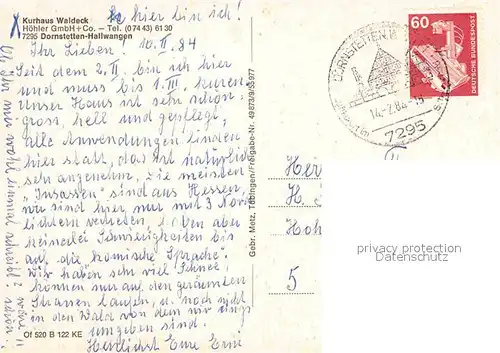 X hier bin ich!
Kurhaus Waldeck
Höhler GmbH + Co. – Tel. (0 74 43) 61 30
7295 Dornstetten-Hallwangen
Ihr Lieben! 10. II. 84
Seit dem 2. II. bin ich hier
und muss bis 1. III. kuren
unser Haus ist sehr schön:
gross, hell und gepflegt,
alle Anwendungen finden
hier statt, das ist natürlich
sehr angenehm, die meisten
"Insassen" sind aus Hessen
wir sind hier nur mit 3
vertreten, haben aber
keinerlei Schwierigkeiten bis
auf die komische Sprache.
Wir haben sehr viel Schnee,
können nur auf den geräumten
Strassen laufen, u. noch nicht
in den Wald von dem wir rings
umgeben sind.
Herzlichst Eure Erni
Of 520 B 122 KE
Ob Ihr mir wohl einmal schreibt? wäre schön!
Gebr. Metz, Tübingen/Freigabe-Nr.
DORNSTETTEN
14.-2.84-
7295
60
DEUTSCHE BUNDESPOST
Her
H
Hoh
5
privacy protection
Datenschutz